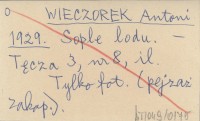 WIECZOREK Antoni
1929. Sople lodu. –
Tęcza 3, nr 8, il.
Tylko fot. (pejzaż
zakop.).